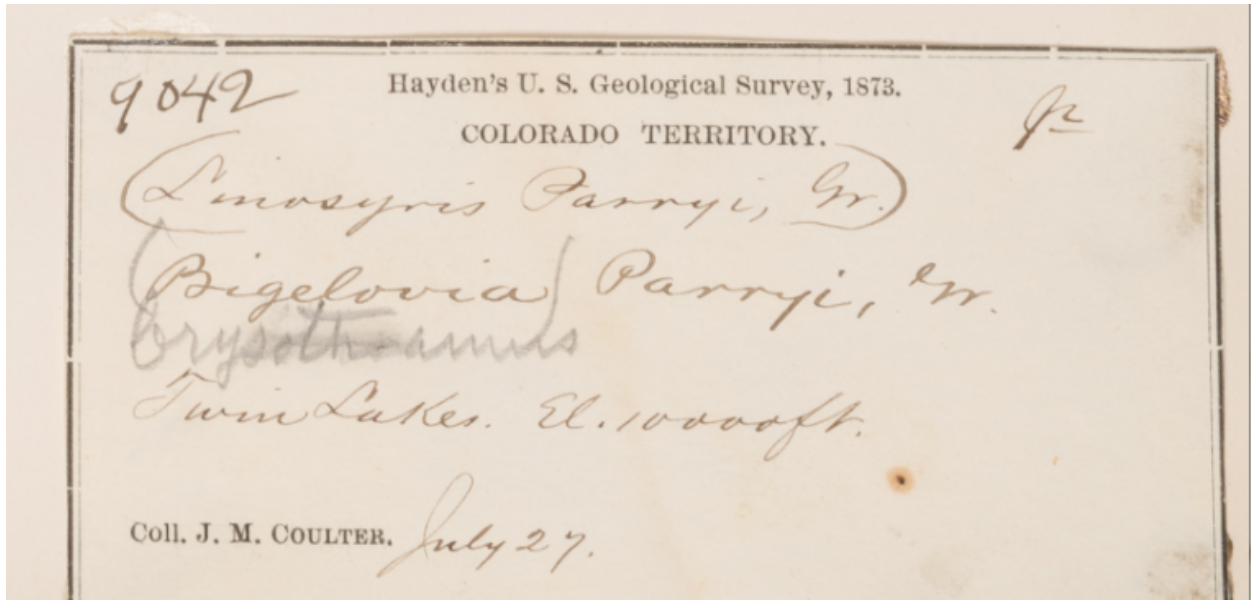 9042 Hayden's U. S. Geological Survey, 1873.
COLORADO TERRITORY.
(Linosyris Parryi, Gr.)
(Bigelovia) Parryi, Gr.
Crysothamnus
Twin Lakes. El. 10000ft.
Coll. J. M. COULTER. July 27.